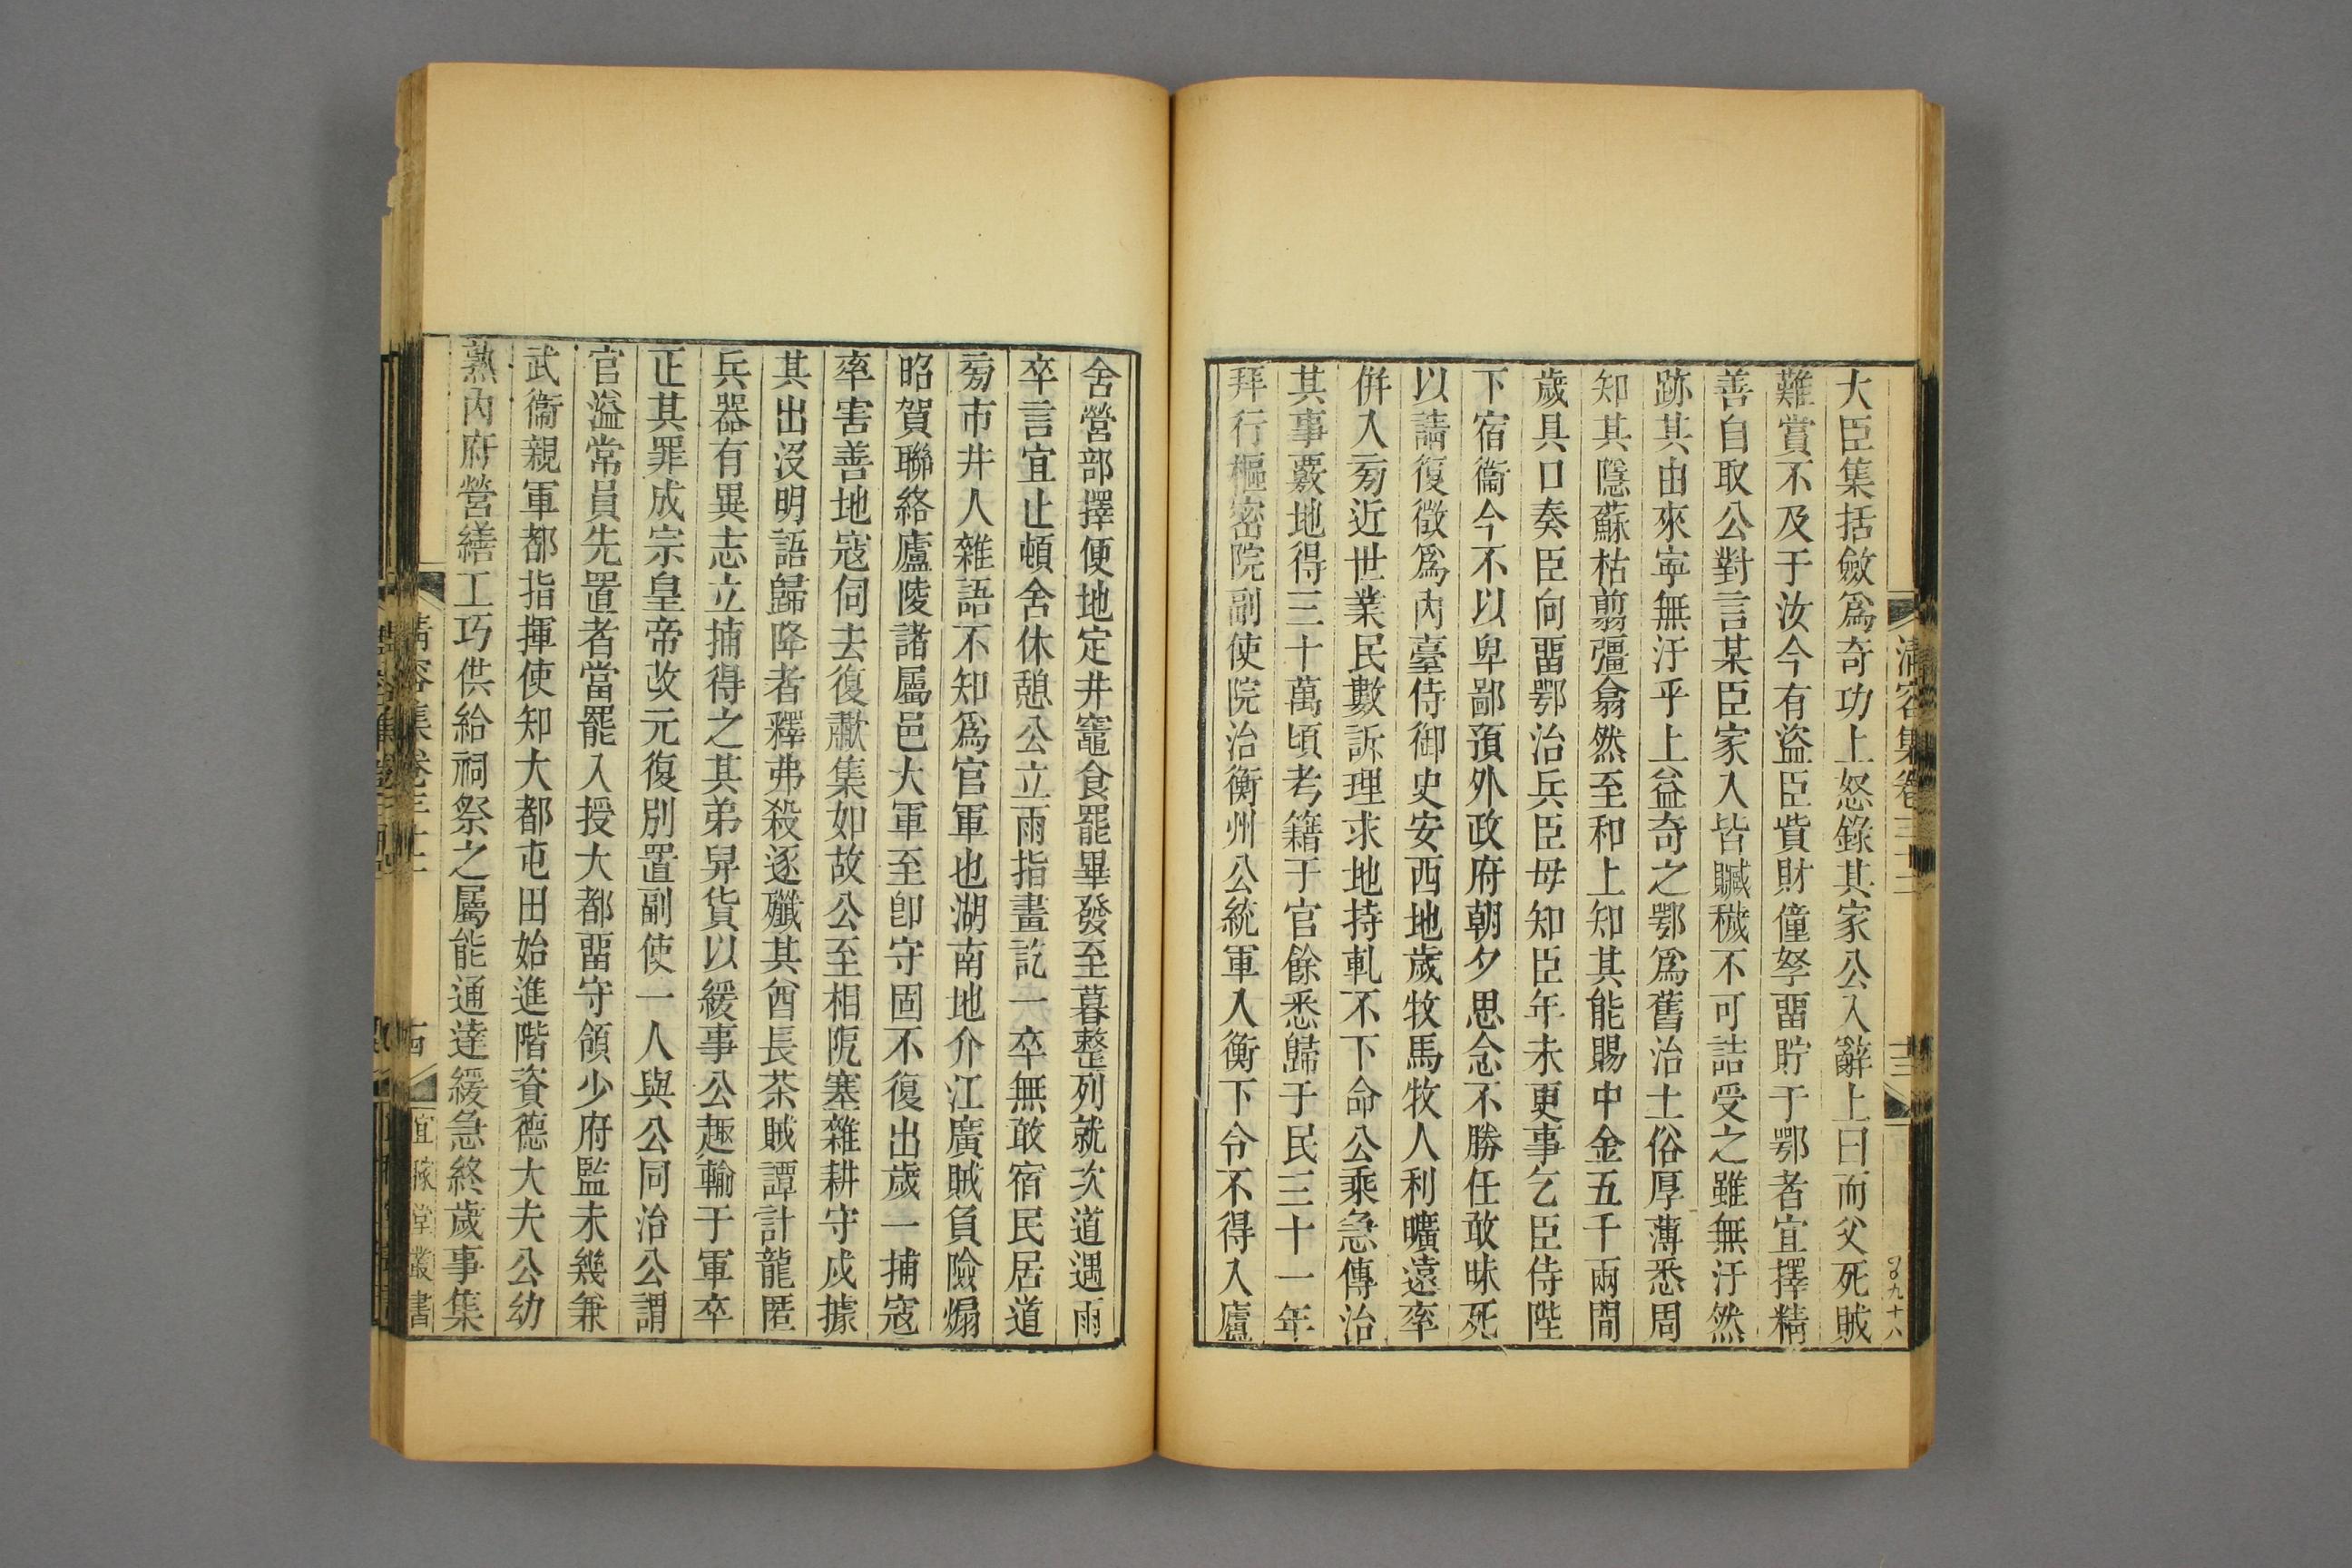 大臣集括斂爲奇功上怒錄其家公入辭上曰而父死賊
難賞不及于汝今有盜臣貲財僮孥畱貯于鄂者宜擇精
善自取公對言某臣家人皆贓穢不可詰受之雖無汙然
跡其由來寧無汙乎上益奇之鄂爲舊治土俗厚薄悉周
知其隱蘇枯翦彊翕然至和上知其能賜中金五千兩閒
歲具口奏臣向畱鄂治兵臣毋知臣年未更事乞臣侍陛
下宿衞今不以卑鄙預外政府朝夕思念不勝任敢昧死
以請復徵爲內臺侍御史安西地歲牧馬牧人利曠遠率
倂入旁近世業民數訴理求地持軋不下命公乘急傳治
其事覈地得三十萬頃考籍于官餘悉歸于民三十一年
拜行樞密院副使院治衡州公統軍入衡下令不得入廬
舍營部擇便地定井竈食罷畢發至暮整列就次道遇雨
卒言宜止頓舍休憩公立雨指畫訖一卒無敢宿民居道
旁市井人雜語不知爲官軍也湖南地介江廣賊負險煽
昭賀聯絡廬陵諸屬邑大軍至卽守固不復出歲一捕寇
率害善地寇伺去復歗集如故公至相阨塞雜耕守戍據
其出沒明語歸降者釋弗殺逐殲其酋長茶賊譚計龍匿
兵器有異志立捕得之其弟舁貨以緩事公趣輸于軍卒
正其罪成宗皇帝改元復別置副使一人與公同治公謂
官溢常員先置者當罷入授大都畱守領少府監未幾兼
武衞親軍都指揮使知大都屯田始進階資德大夫公幼
熟內府營繕工巧供給祠祭之屬能通達緩急終歲事集
清容集卷三十二
十三
清容集卷三十二
十四
宜稼堂叢書